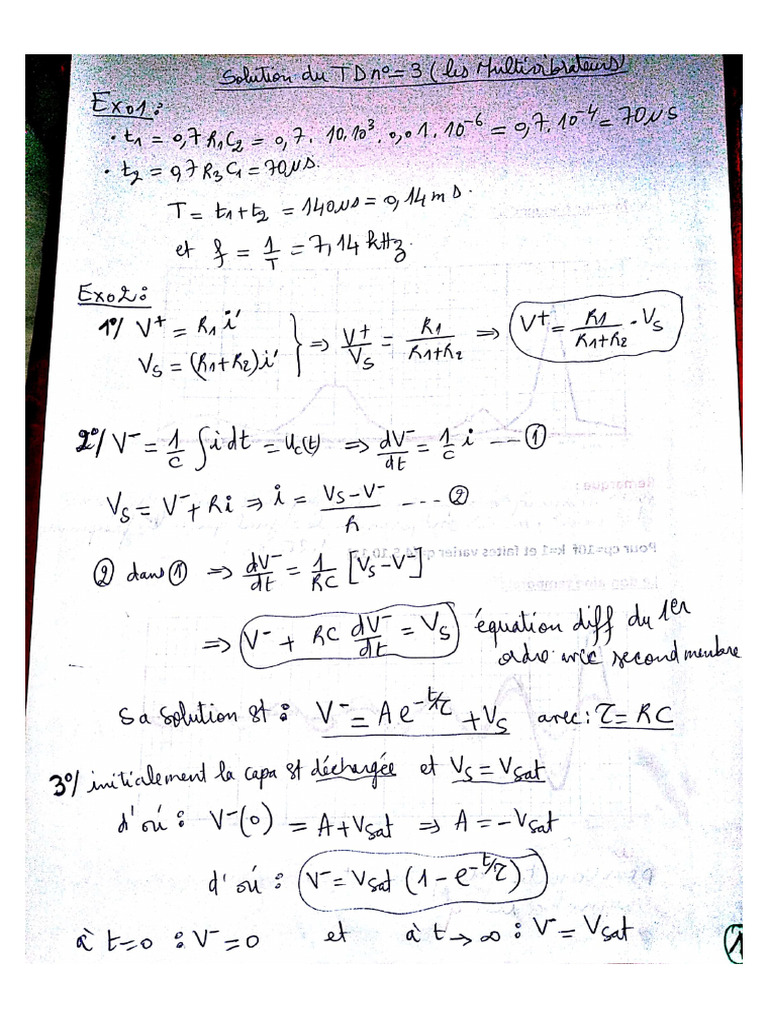 Solution du TD n° = 3 (les Multivibrateurs)
Exo1:
• t1 = 0,7 R1C2 = 0,7 . 10.10^3 . 0,01 . 10^-6 = 0,7 . 10^-4 = 70 µs
• t2 = 0,7 R3 C1 = 70 µs.
T = t1 + t2 = 140 µs = 0,14 ms.
et f = 1/T = 7,14 kHz.
Exo2:
1°/ V+ = R1 i'
Vs = (R1+R2) i' } => V+/Vs = R1/(R1+R2) => V+ = R1/(R1+R2) . Vs
2°/ V- = 1/C ∫ i dt = Uc(t) => dV-/dt = 1/C i --- ①
Vs = V- + Ri => i = (Vs - V-)/R --- ②
② dans ① => dV-/dt = 1/RC [Vs - V-]
=> V- + RC dV-/dt = Vs équation diff du 1er
ordre avec second membre
Sa solution st : V- = A e^-t/τ + Vs avec : τ = RC
3°/ initialement la capa st déchargée et Vs = Vsat
d'où : V-(0) = A + Vsat => A = -Vsat
d'où : V- = Vsat (1 - e^-t/τ)
à t=0 : V- = 0 et à t → ∞ : V- = Vsat
①